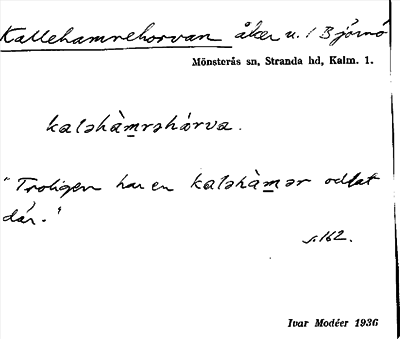 Kallehamrehorvan åker u. / Björnö
Mönsterås sn, Stranda hd, Kalm. 1.
kaləhàmrəhårva.
"Troligen har en kaləhàmər odlat
där."
s. 162.
Ivar Modéer 1936